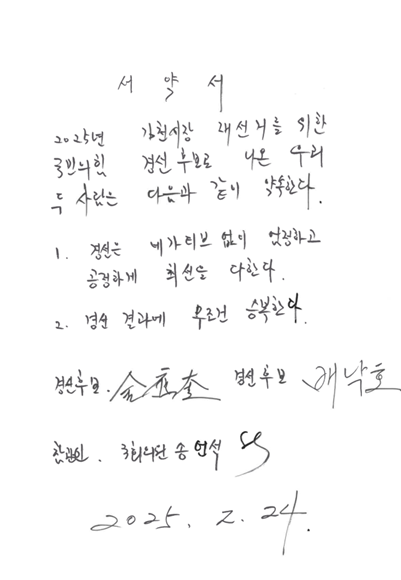 서 약 서
2025년 김천시장 재선거를 위한
국민의힘 경선후보로 나온 우리
두 사람은 다음과 같이 약속한다.
1. 경선은 네가티브 없이 엄정하고
공정하게 최선을 다한다.
2. 경선 결과에 무조건 승복한다.
경선후보. 金應奎 경선후보 배낙호
참관인. 국회의원 송언석
2025. 2. 24.